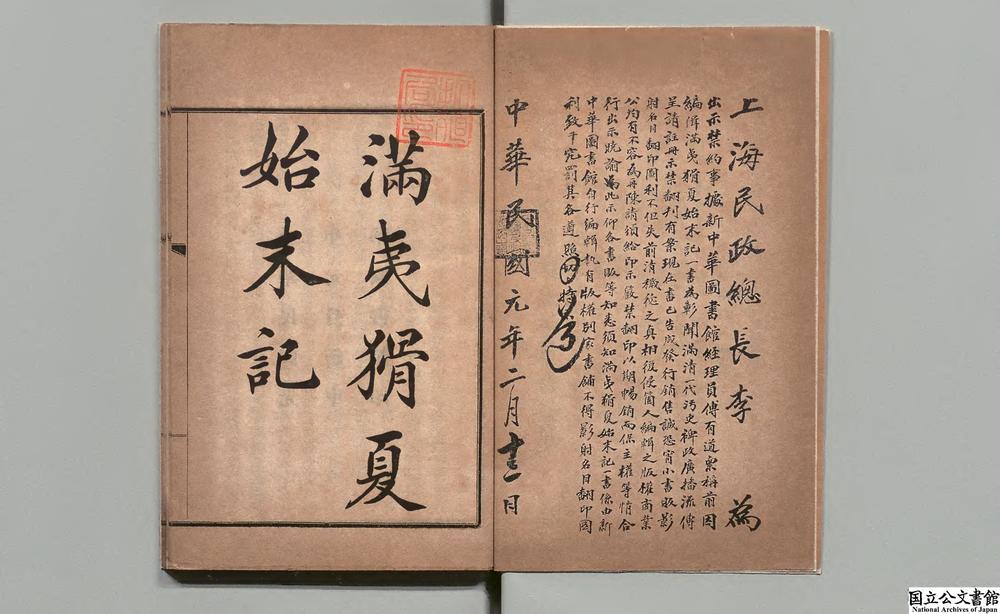 上海民政總長李 為
出示禁約事據新中華圖書館經理員傅有道稟稱前因
編緝滿夷猾夏始末記一書為彰聞滿清一代污史裨政廣播流傳
呈請註冊示禁翻刊有案現在書已告成發行銷售誠恐宵小書販影
射名目翻印圖利不但失前清檄從之真相復使箇人編輯之版權商業
公均有不容為再陳請須給印示嚴禁翻印以期暢銷而保主權等情合
行出示曉諭為此示仰各書販等知悉須知滿夷猾夏始末記一書係由新
中華圖書館自行編輯執有版權別家書舖不得影射名目翻印圖
利致干究罰其各遵照切特
中華民國元年二月日
滿夷猾夏
始末記
国立公文書館
National Archives of Japan